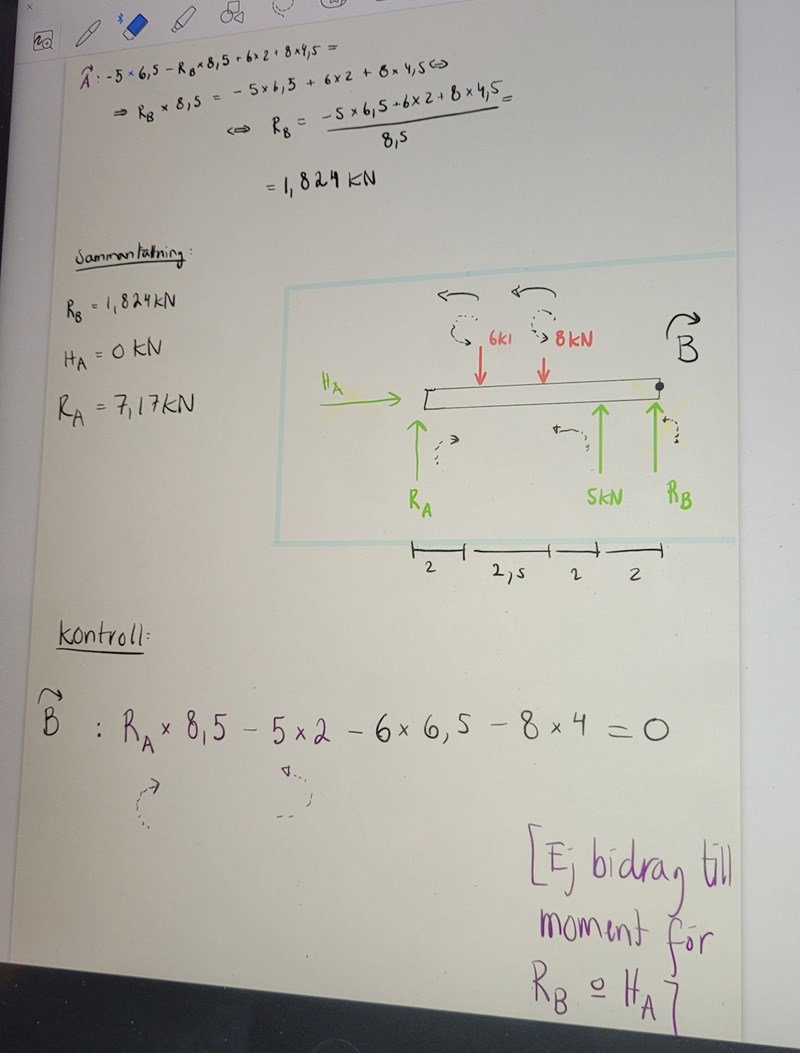 A : -5 × 6,5 - R_B × 8,5 + 6 × 2 + 8 × 4,5 =
⇒ R_B × 8,5 = - 5 × 6,5 + 6 × 2 + 8 × 4,5 ⇔
⇔ R_B = (-5 × 6,5 + 6 × 2 + 8 × 4,5) / 8,5 =
= 1,824 kN
Sammanfattning:
R_B = 1,824 kN
H_A = 0 kN
R_A = 7,17 kN
6k
8kN
B
H_A
R_A
5kN
R_B
2
2,5
2
2
Kontroll:
B : R_A × 8,5 - 5 × 2 - 6 × 6,5 - 8 × 4 = 0
[Ej bidrag till
moment för
R_B o H_A]